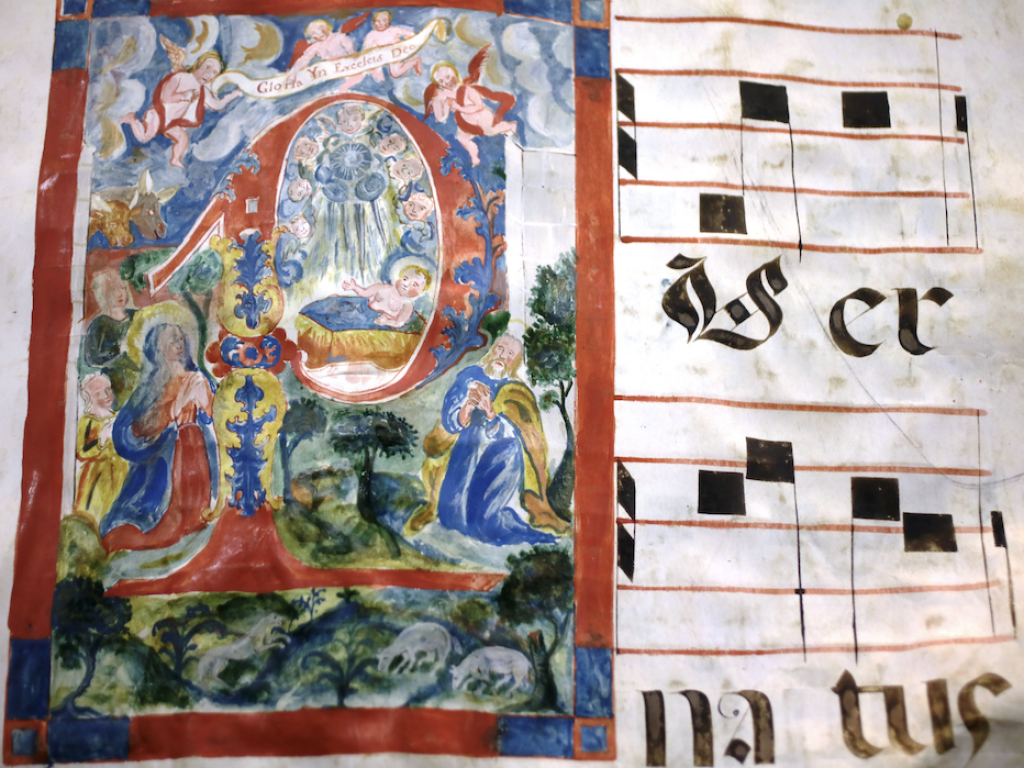 Gloria Yn Excelcis Deo
P Uer
na tus